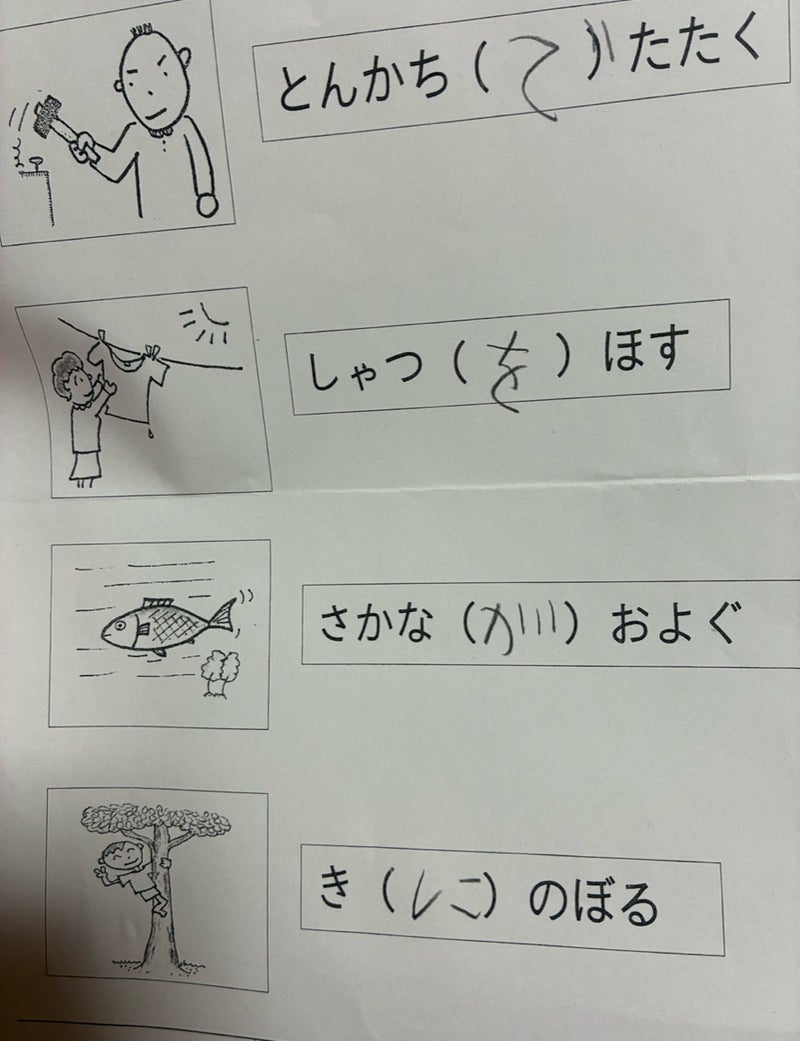 とんかち（で）たたく
しゃつ（を）ほす
さかな（が）およぐ
き（に）のぼる